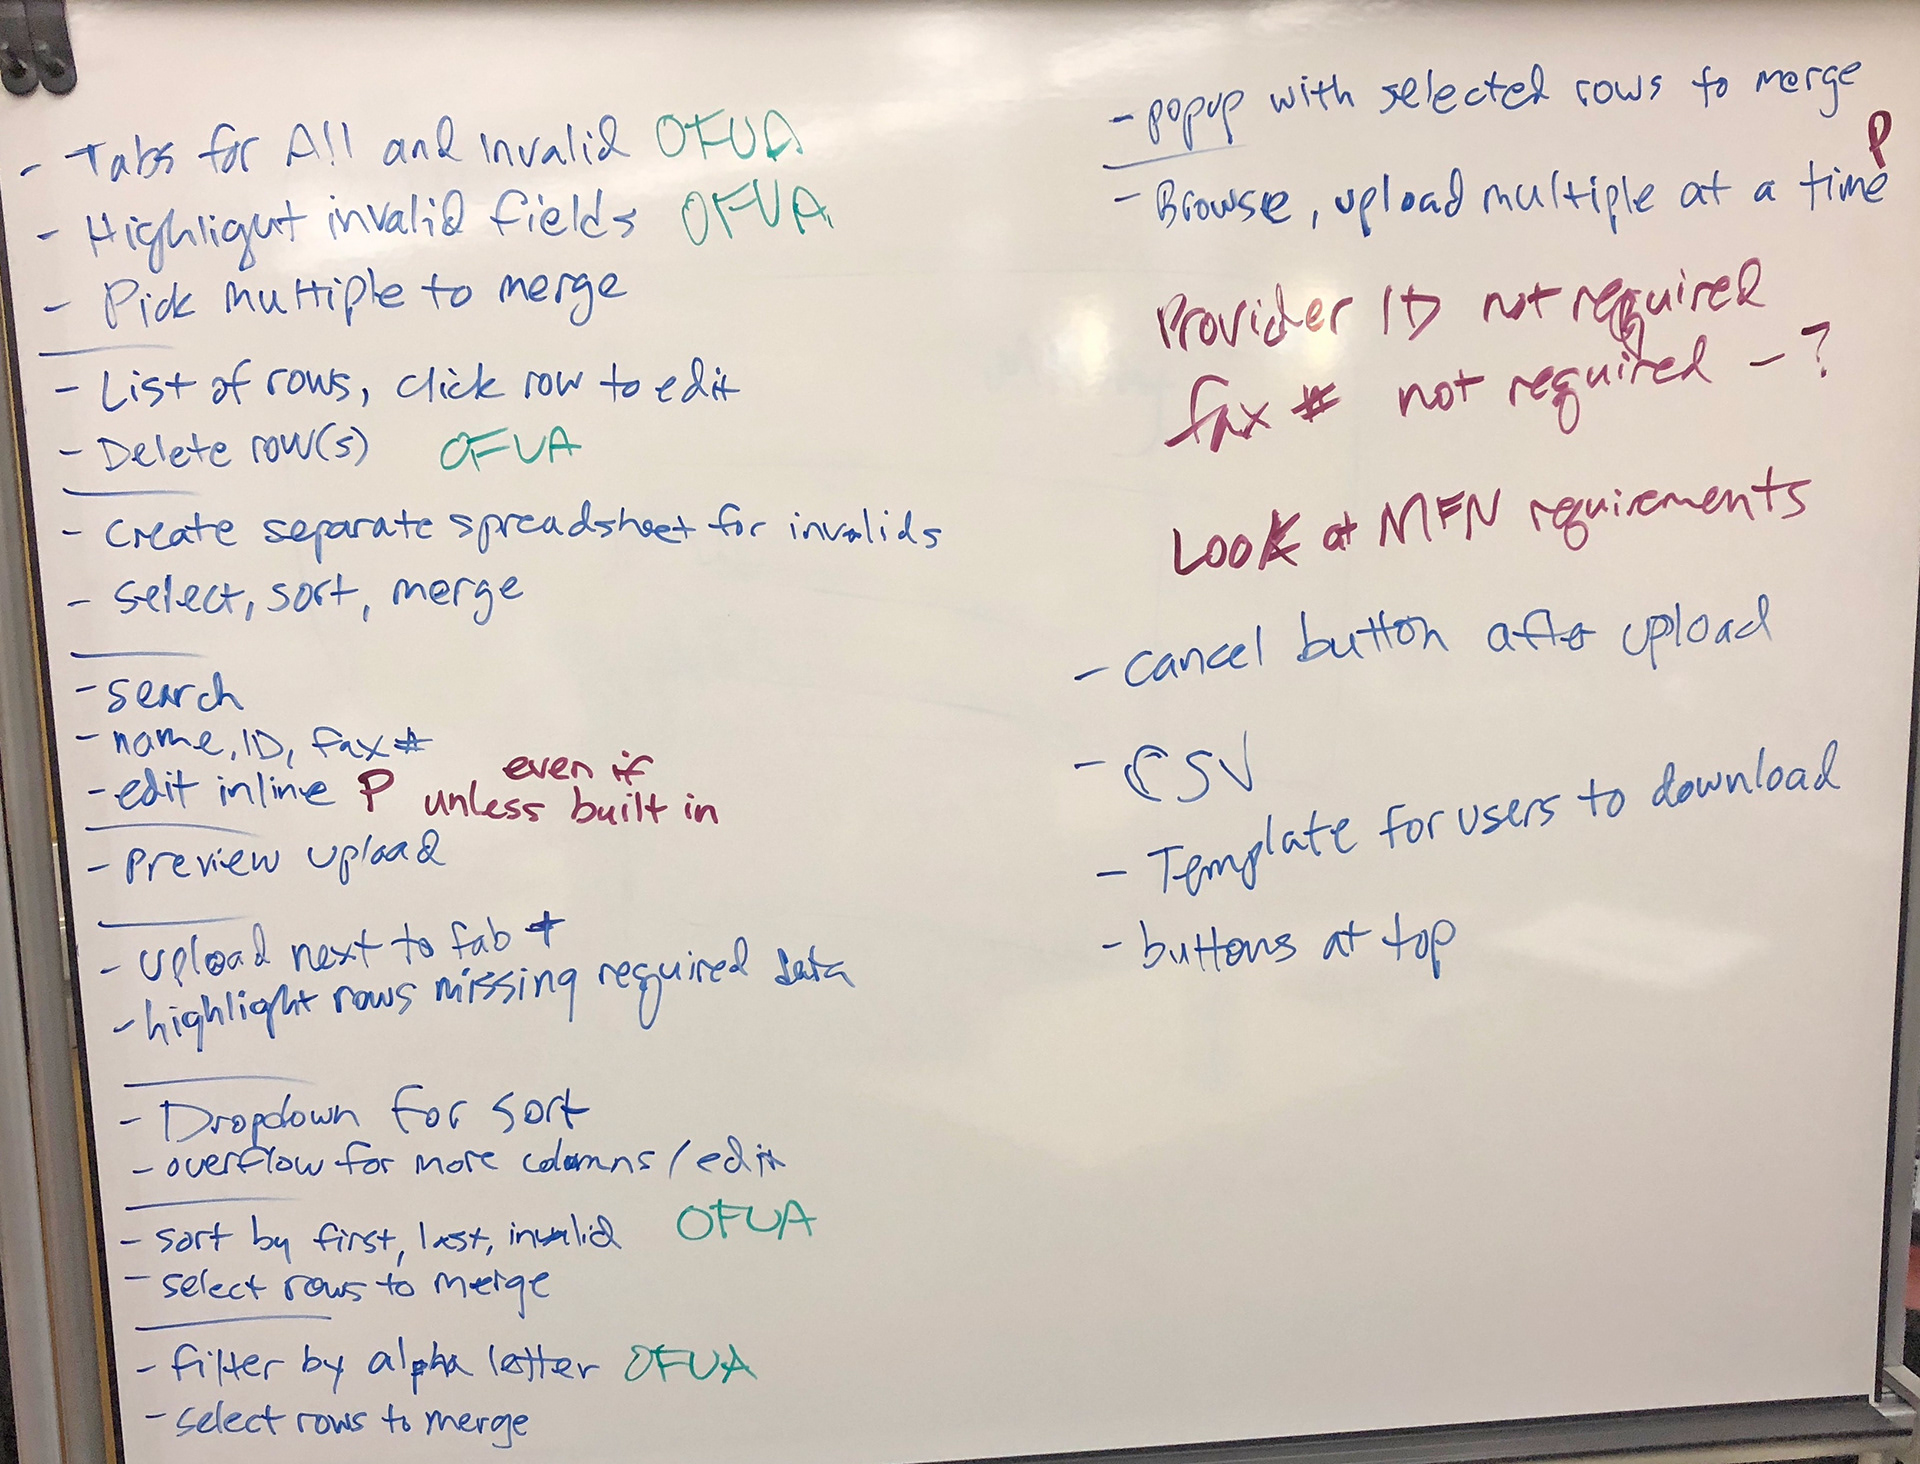 - Tabs for All and Invalid OFUA
- Highlight invalid fields OFUA
- Pick multiple to merge
- List of rows, click row to edit
- Delete row(s) OFUA
- Create separate spreadsheet for invalids
- select, sort, merge
- search
- name, ID, fax #
- edit inline P unless built in
even if
- Preview upload
- upload next to fab +
- highlight rows missing required data
- Dropdown for sort
- overflow for more columns / edit
- sort by first, last, invalid OFUA
- select rows to merge
- filter by alpha letter OFUA
- select rows to merge
- popup with selected rows to merge
- Browse, upload multiple at a time P
Provider ID not required
fax # not required - ?
Look at MFN requirements
- cancel button after upload
- CSV
- Template for users to download
- buttons at top